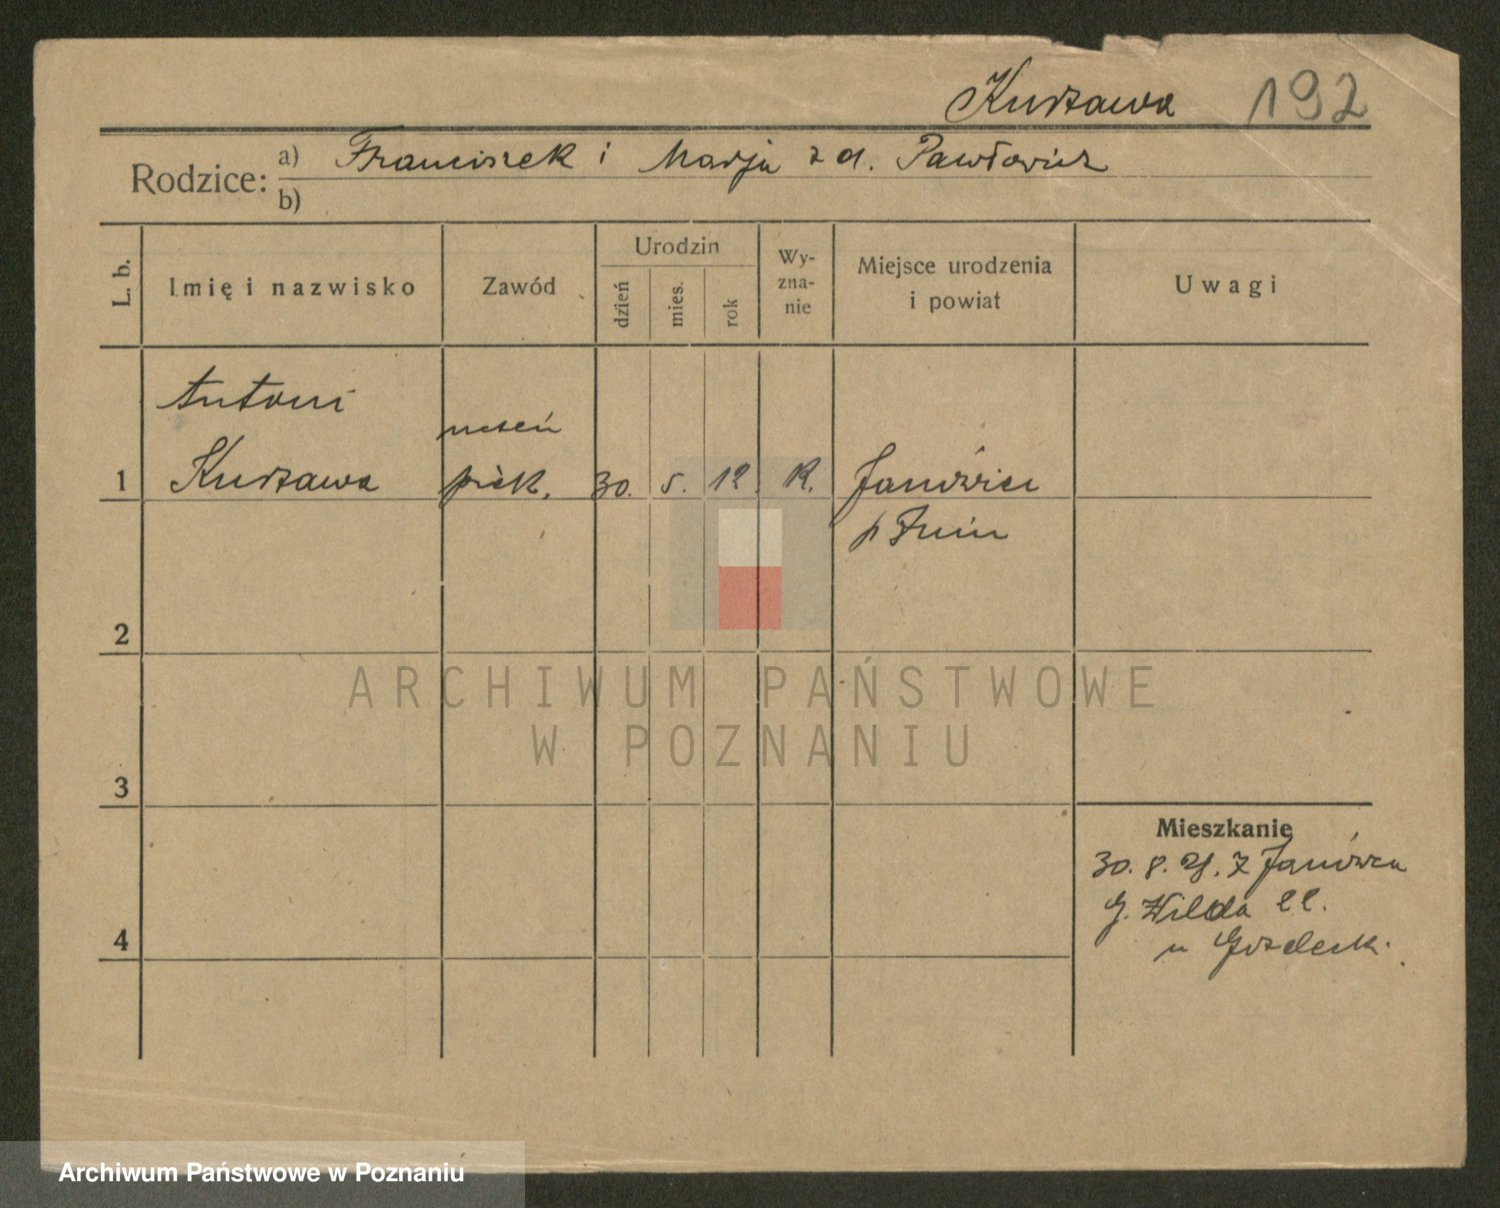 Kurzawa 192
Rodzice: a) Franciszek i Marja z d. Pawłowicz
b)
L. b.
Imię i nazwisko
Zawód
Urodzin
dzień
mies.
rok
Wy-
zna-
nie
Miejsce urodzenia
i powiat
Uwagi
Antoni
uczeń
1 Kurzawa piek. 30. 5. 12. R. Janówiec
p Żnin
2
3
4
Mieszkanie
30. 8. 28. z Janówca
G. Wilda 22.
u
ARCHIWUM PAŃSTWOWE
W POZNANIU
Archiwum Państwowe w Poznaniu